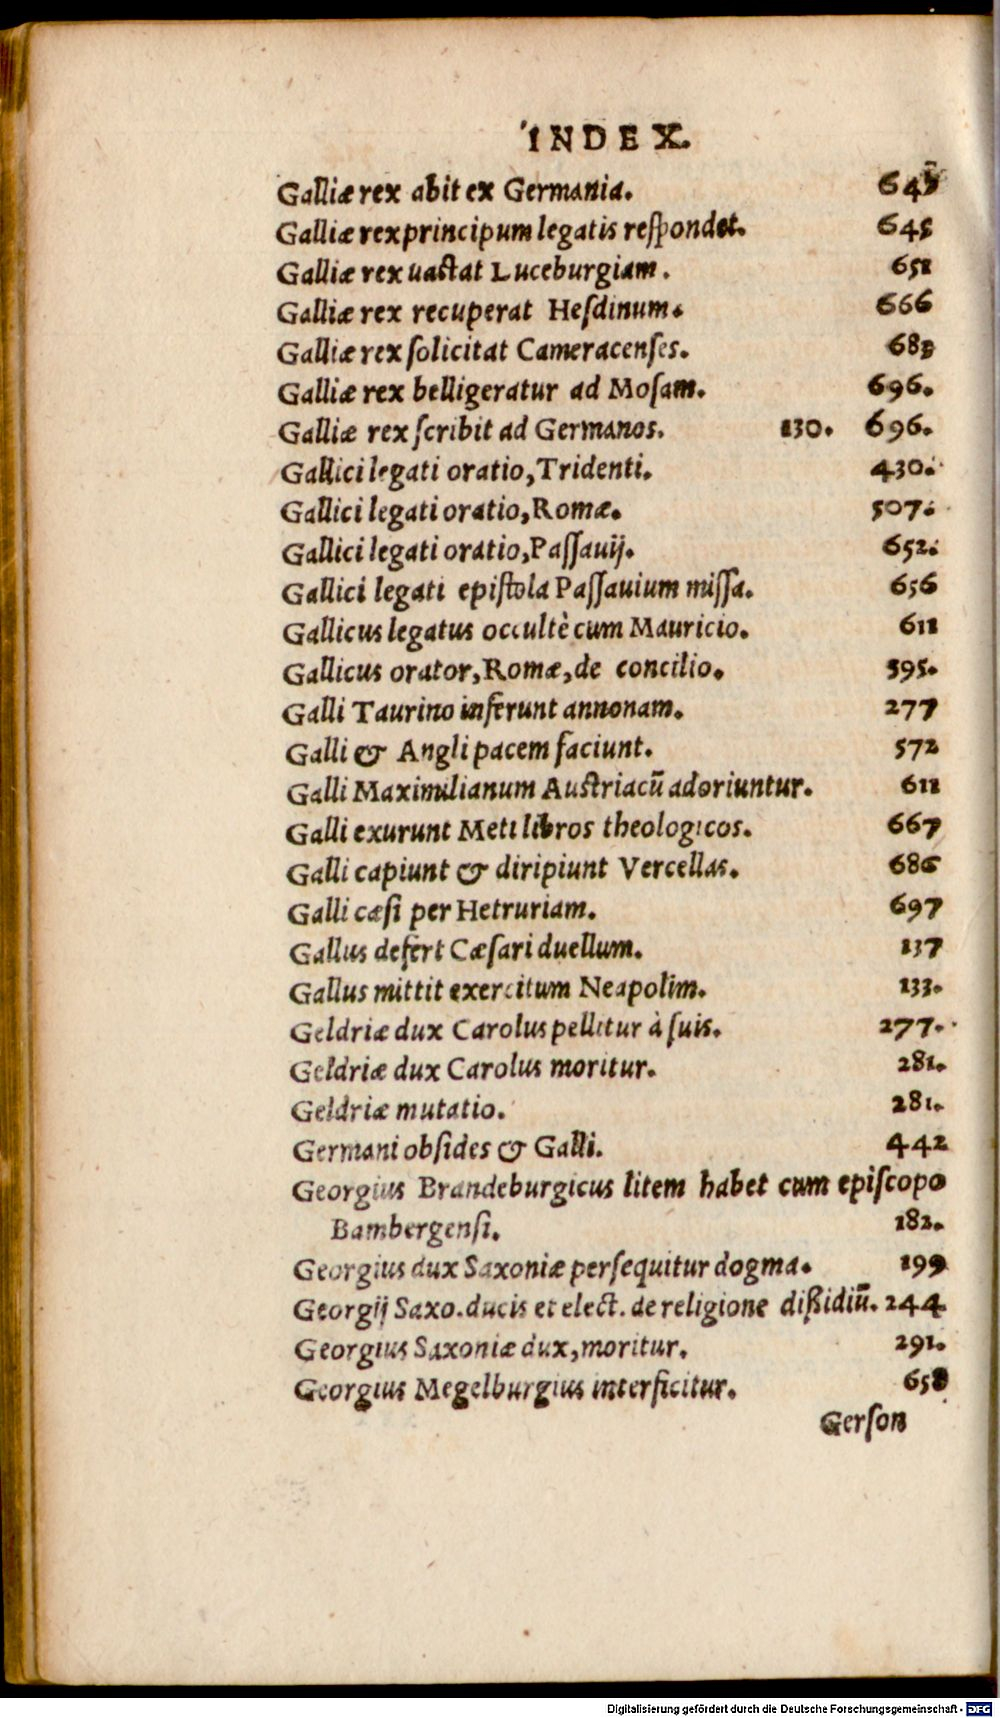 INDEX.
Galliæ rex abit ex Germania.
Galliæ rex principum legatis reſpondet. 645
Galliæ rex uastat Luceburgiam. 651
Galliæ rex recuperat Heſdinum. 666
Galliæ rex ſolicitat Cameracenſes. 683
Galliæ rex belligeratur ad Moſam. 696.
Galliæ rex ſcribit ad Germanos. 130. 696.
Gallici legati oratio, Tridenti. 430.
Gallici legati oratio, Romæ. 507.
Gallici legati oratio, Paſſauij. 652.
Gallici legati epiſtola Paſſauium miſſa. 656
Gallicus legatus occultè cum Mauricio. 611
Gallicus orator, Romæ, de concilio. 595.
Galli Taurino inferunt annonam. 277
Galli & Angli pacem faciunt. 572
Galli Maximilianum Austriacũ adoriuntur. 611
Galli exurunt Meti libros theologicos. 667
Galli capiunt & diripiunt Vercellas. 686
Galli cæſi per Hetruriam. 697
Gallus defert Cæſari duellum. 137
Gallus mittit exercitum Neapolim. 133.
Geldriæ dux Carolus pellitur à ſuis. 277.
Geldriæ dux Carolus moritur. 281.
Geldriæ mutatio. 281.
Germani obſides & Galli. 442
Georgius Brandeburgicus litem habet cum epiſcopo
Bambergenſi. 182.
Georgius dux Saxoniæ perſequitur dogma. 199
Georgij Saxo. ducis et elect. de religione dißidiũ. 244
Georgius Saxoniæ dux, moritur. 291.
Georgius Megelburgius interficitur. 658
Gerſon
Digitalisierung gefördert durch die Deutsche Forschungsgemeinschaft - DFG